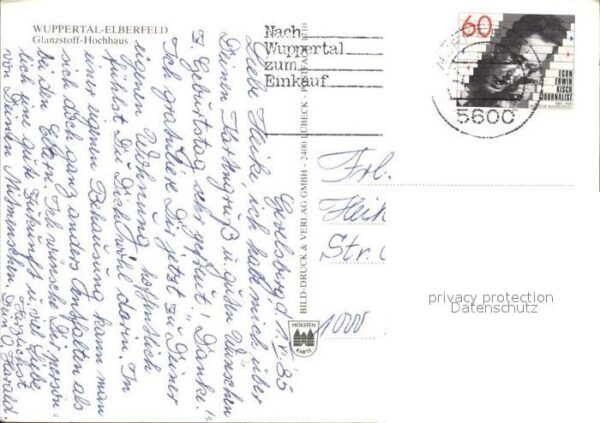 WUPPERTAL-ELBERFELD
Glanzstoff-Hochhaus
Nach
Wuppertal
zum
Einkauf
60
EGON
ERWIN
KISCH
JOURNALIST
5600
d. 1.V.85
Liebe Heike, ich hab mich über
Deinen Kartengruß u. guten Wünschen
z. Geburtstag sehr gefreut! „Danke!"
Ich gratuliere Dir jetzt zu Deiner
eigenen Wohnung, hoffentlich
fühlst Du Dich wohl darin. In
einer eigenen Behausung kann man
sich doch ganz anders entfalten als
bei den Eltern. Ich wünsche Dir persön-
lich eine gute Zukunft u. viel Liebe
von Deinen Mitmenschen. Herzlichst
Dein O. Harald.
BILD-DRUCK & VERLAG GMBH - 2400 LÜBECK
HOLSTEN
KARTE
Frl.
Heik
Str.
1000
privacy protection
Datenschutz